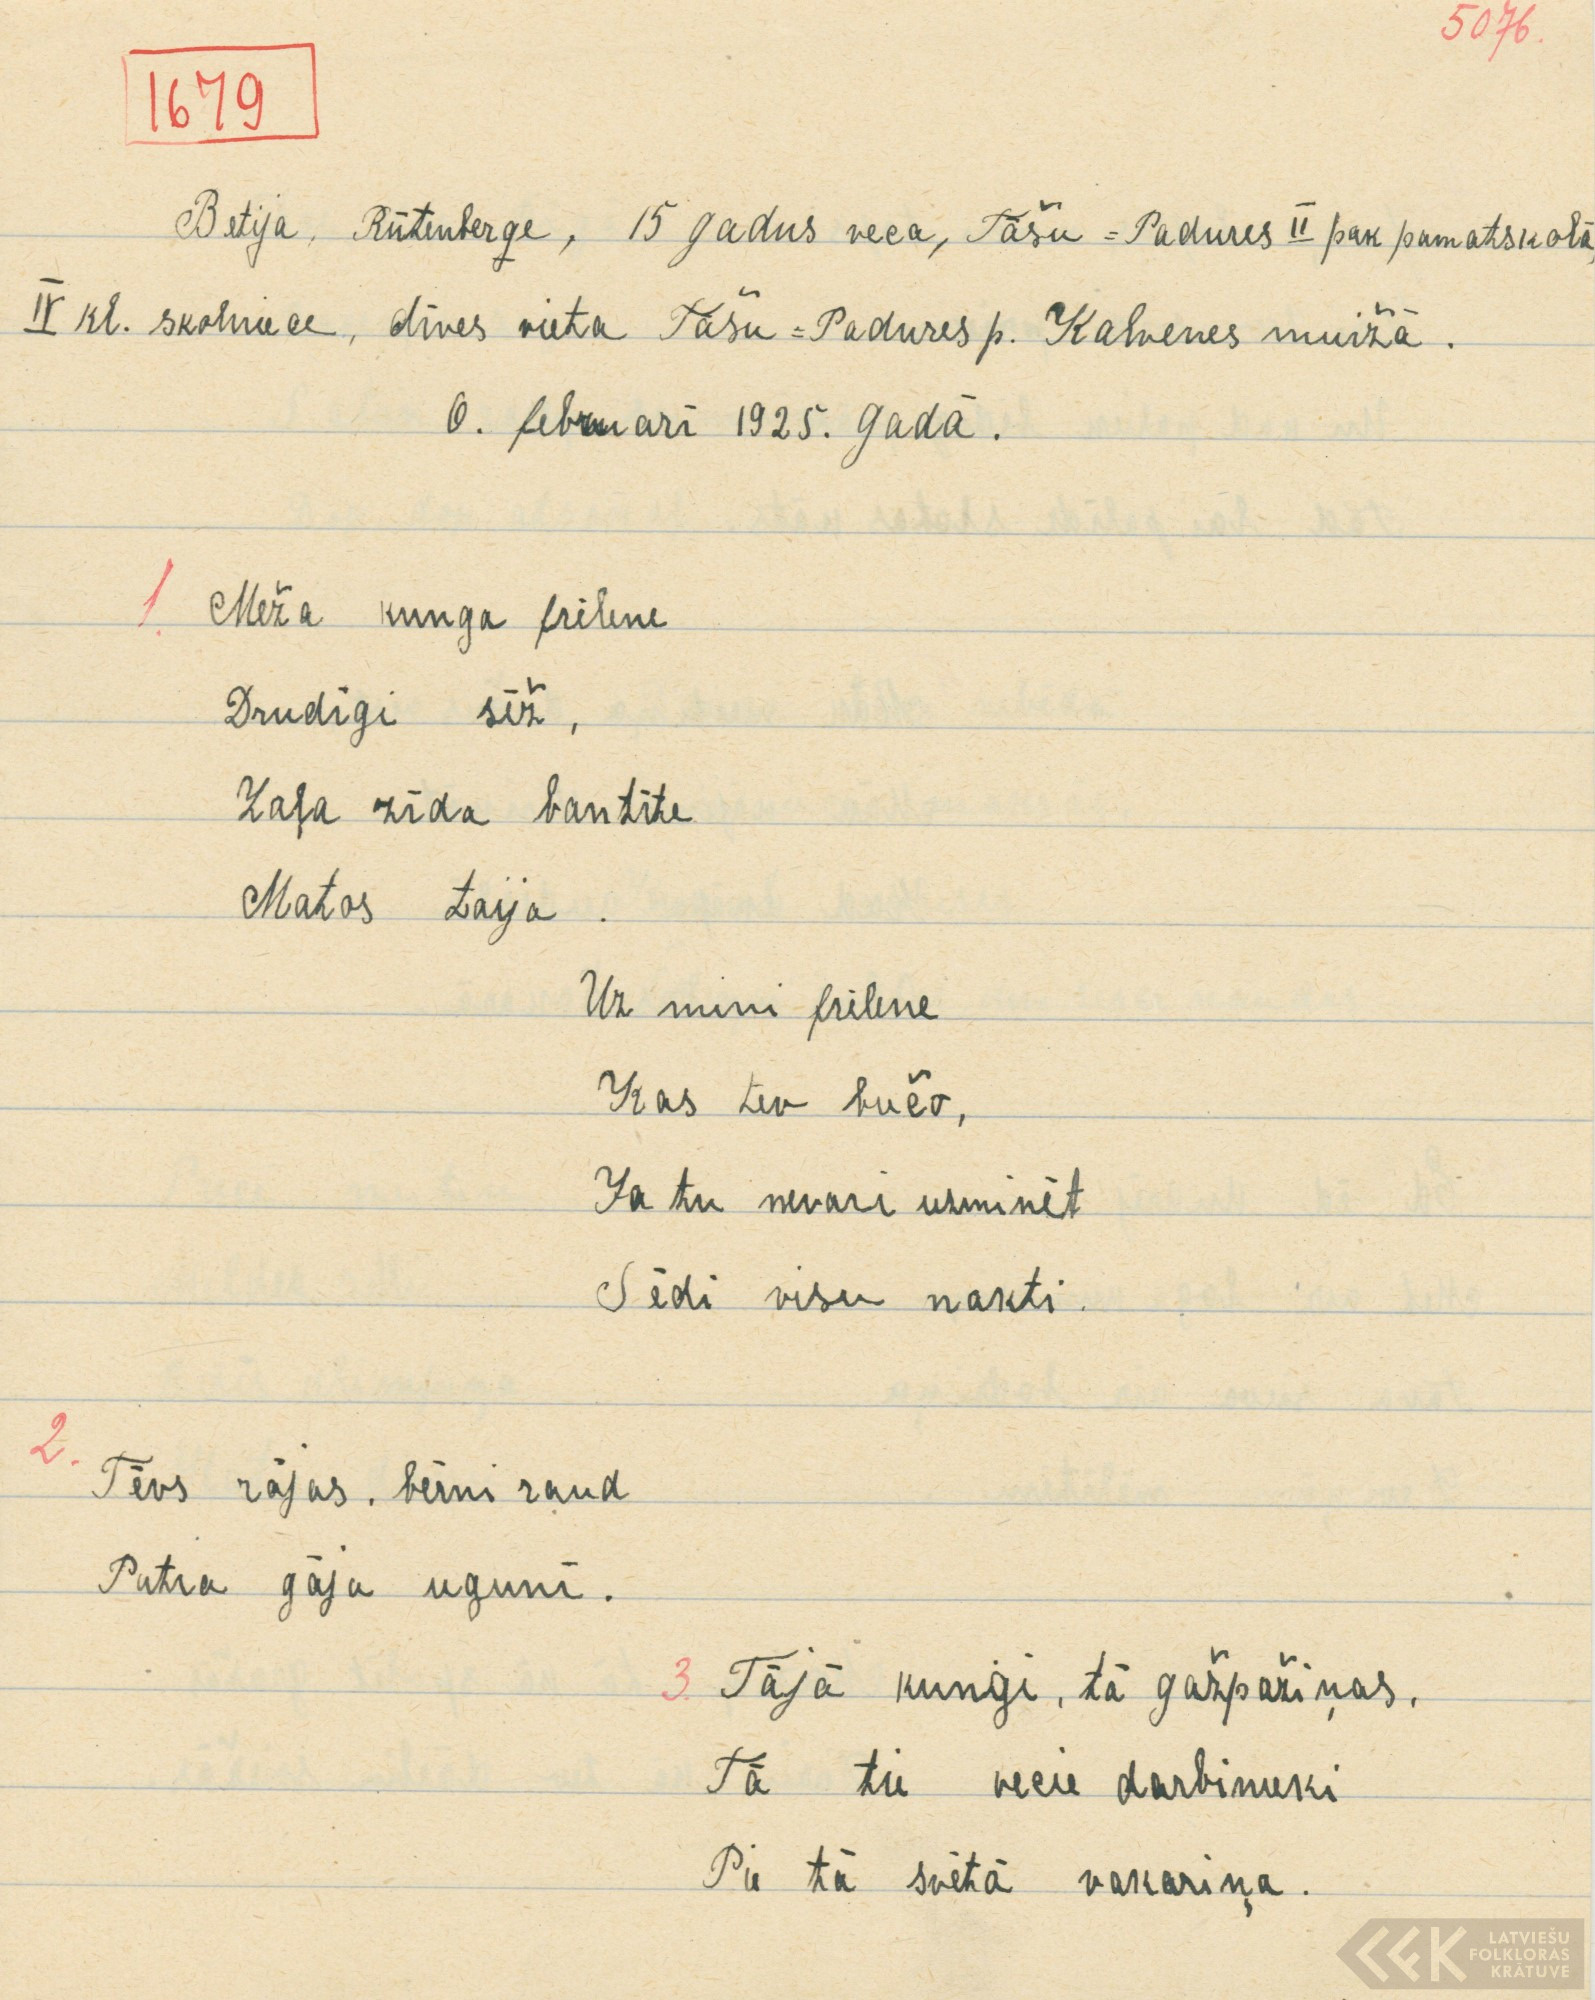 5076.
1679
Betija, Rūtenberge, 15 gadus veca, Tāšu = Padures II pak pamatskolā,
IV kl. skolniece, dīves vieta Tāšu = Padures p. Kalvenes muižā.
6. februarī 1925. gadā.
1. Meža kunga frilene
Drudīgi sēž,
Zaļa zīda bantīte
Matos taija.
Uz mini frilene
Kas tev bučo,
Ja tu nevari uzminēt
Sēdi visu nakti.
2. Tēvs rājas, bērni raud
Putra gāja ugunī.
3. Tājā kungi, tā gašpažiņas,
Tā tie vecie darbinieki
Pie tā svētā vakariņa.
LATVIEŠU
FOLKLORAS
KRĀTUVE